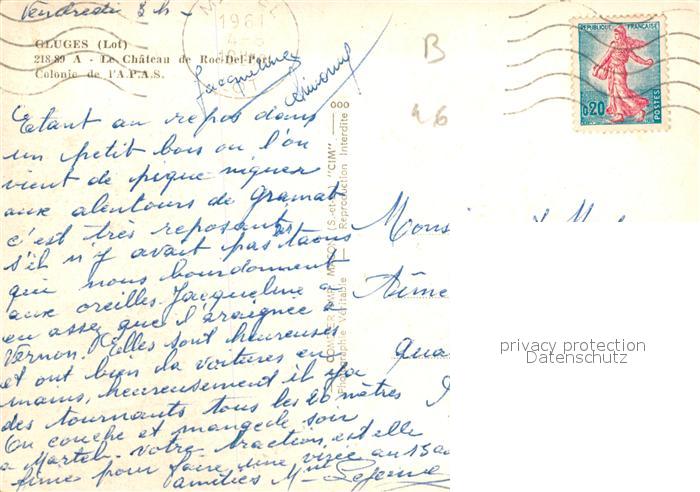 Vendredi 3h -
GLUGES (Lot)
218-89 A - Le Château de Roc-Del-Port
Colonie de l'A.P.A.S.
1961
Jacqueline
B
46
REPUBLIQUE FRANÇAISE
0,20
POSTES
Etant au repos dans
un petit bois ou l'on
vient de pique-niquer
aux alentours de Gramat
c'est très reposant
s'il n'y avait pas les taons
qui nous bourdonnent
aux oreilles. Jacqueline a
eu assez que l'araignée à
Vernon. Elles sont heureuses
et ont bien la voitures en
mains, heureusement il y a
des tournants tous les 20 mètres
On couche et mange le soir
a Martel. votre traction, est elle
pour faire une virée au 15 ao
amitiés Mme Lejeune
"CIM"
Photographie Véritable - Reproduction Interdite
Monsi
Aime
Qua
privacy protection
Datenschutz